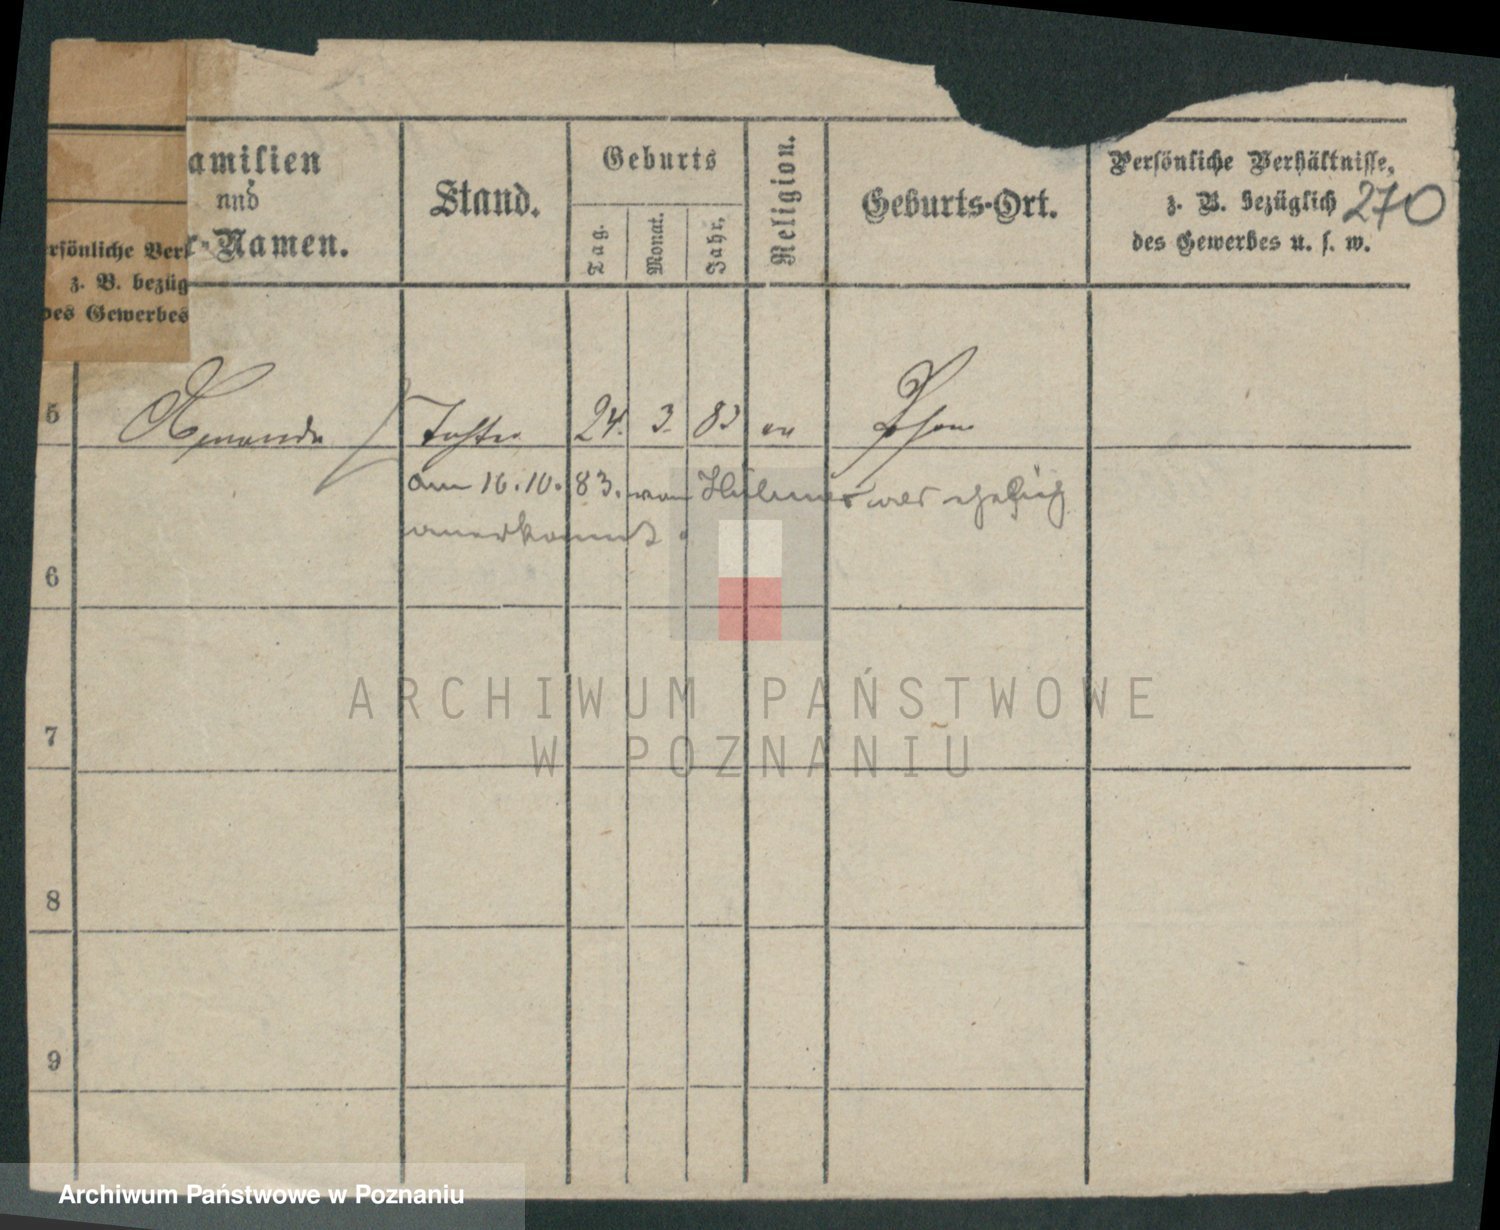 amilien
und
r-Namen.
Stand.
Geburts
Tag.
Monat.
Jahr.
Religion.
Geburts-Ort.
Persönliche Verhältnisse,
z. B. bezüglich
des Gewerbes u. s. w.
270
rsönliche Verh
z. B. bezüg
des Gewerbes
5 Tochter 24. 3. 83 ev Posen
am 16.10. 83. von
anerkannt.
6
7
8
9
ARCHIWUM PAŃSTWOWE
W POZNANIU
Archiwum Państwowe w Poznaniu